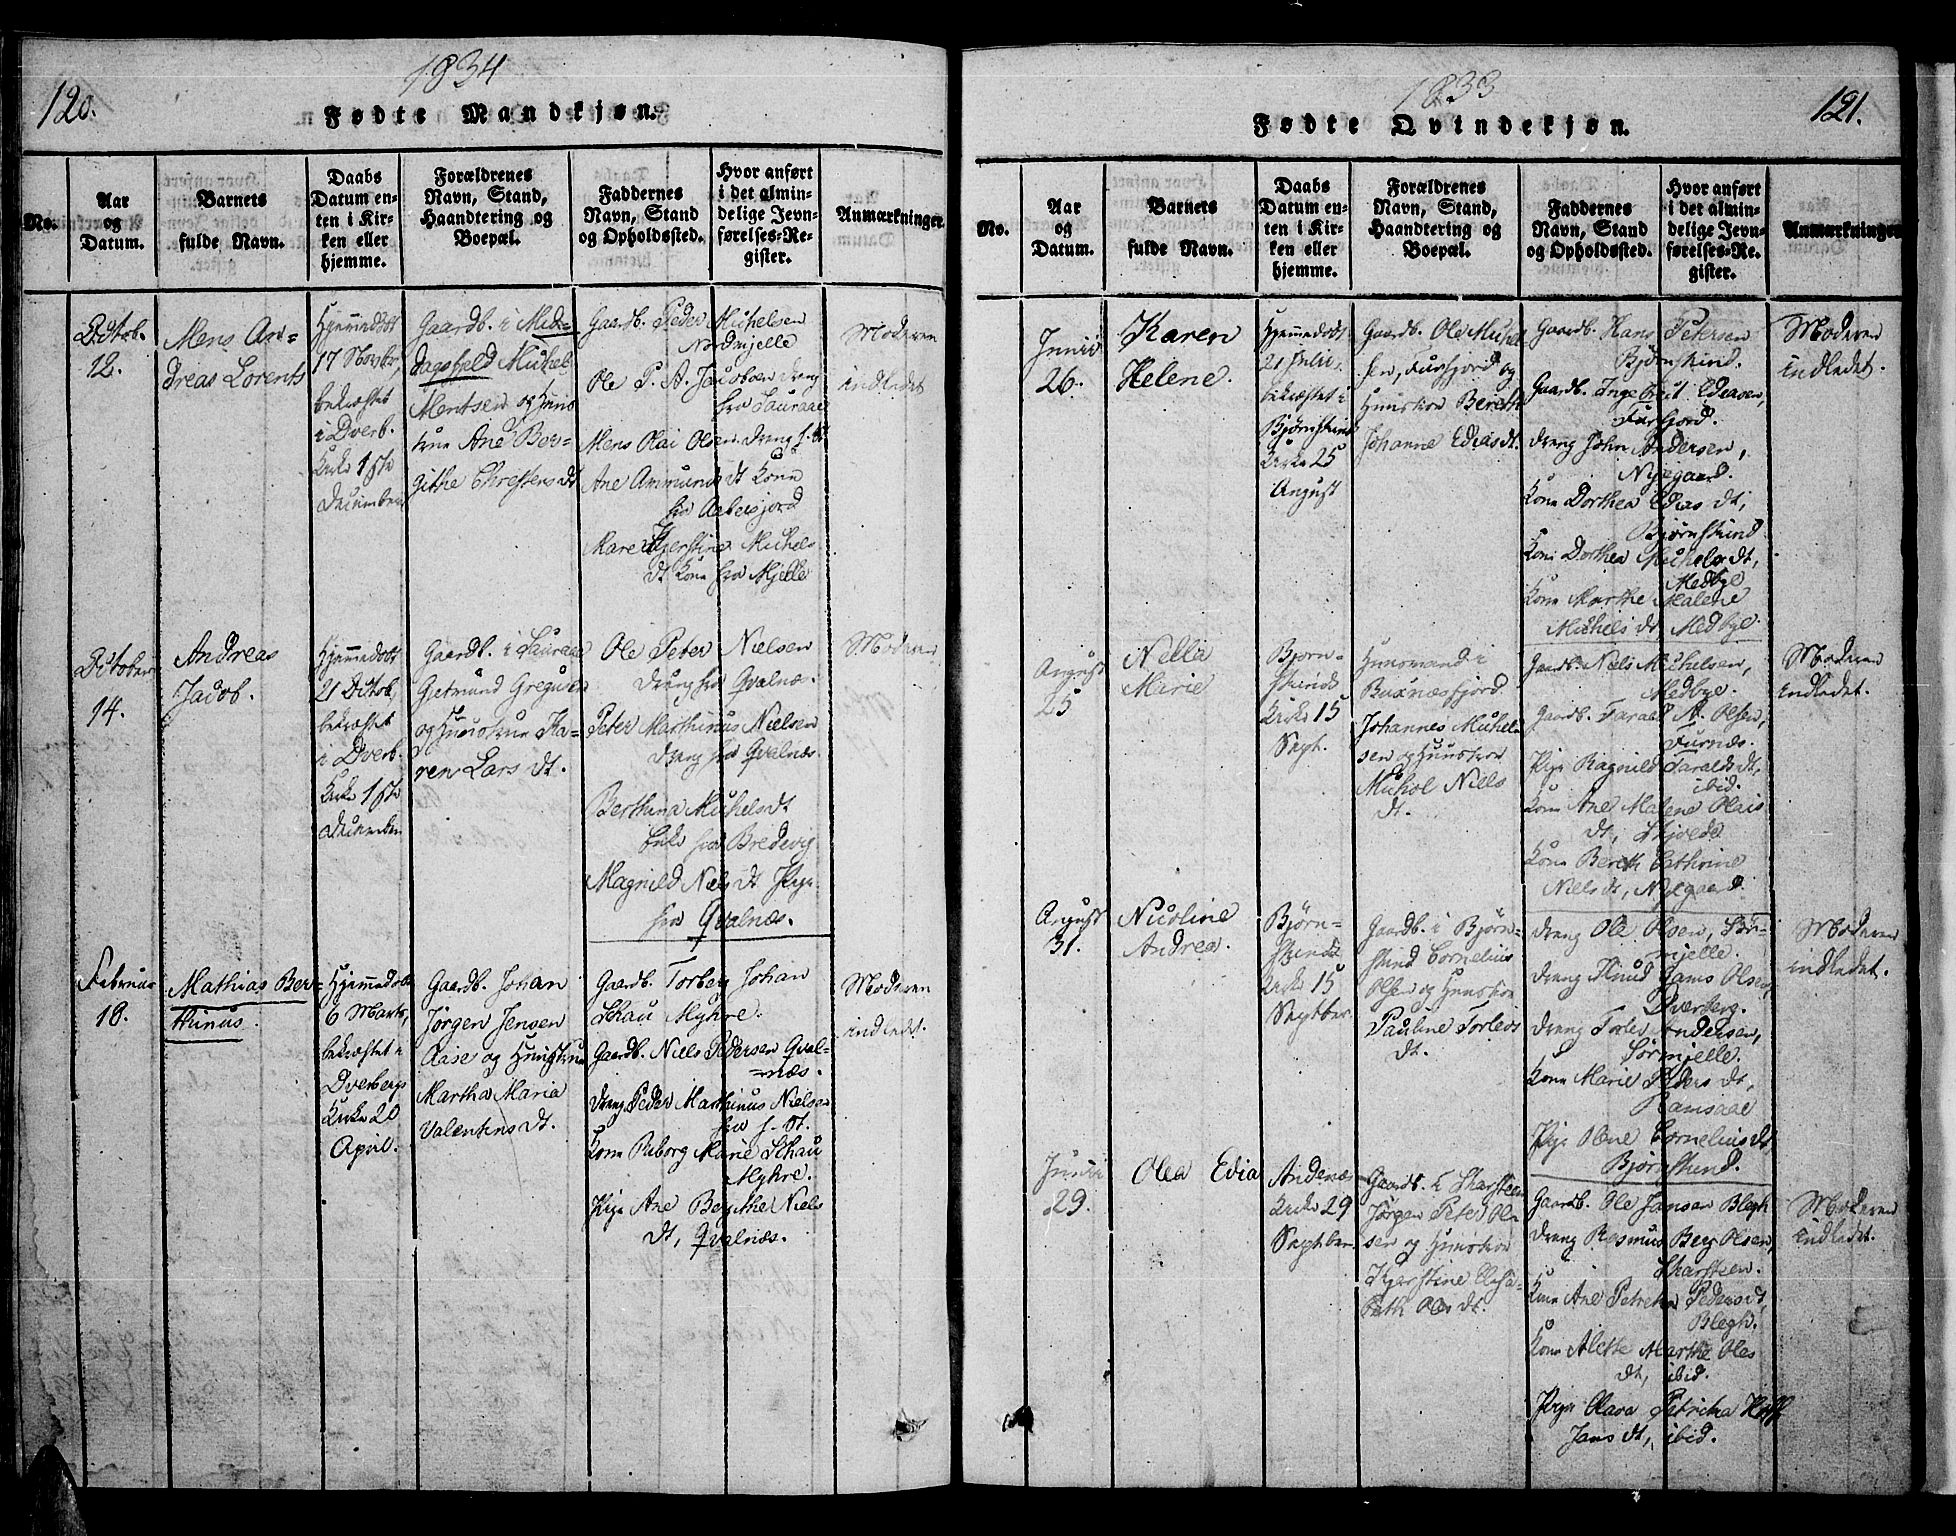 120.
1834
Fødte Mandkjøn.
No.
Aar
og
Datum.
Barnets
fulde Navn.
Daabs
Datum en-
ten i Kir-
ken eller
hjemme.
Forældrenes
Navn, Stand,
Haandtering og
Boepæl.
Faddernes
Navn, Stand
og Opholdssted.
Hvor anført
i det almin-
delige Jevn-
førelses-Re-
gister.
Anmærkninger
Octob.
12.
Mens An-
dreas Lorents
Hjemmedøbt
17 Novbr,
bekræftet
i Dverb.
Kirke 1ste
December
Gaardb. i Med-
dagsfjeld Michel
Mentsen og Huus
true Ane Ber-
githe Christens dt
Gaardb. Peder Michelsen
Nordmjelle
Ole P. A. Jacobsen dreng
fra Sauraae
Mens Olai Olsen dreng f. st
Ane Ammunds dt Kone
fra Aabersjord
Maren Kjerstine Michels
dt Kone fra Mjelle
Moderen
indledet
October
14.
Andreas
Jacob.
Hjemmedøbt
21 Octob,
bekræftet
i Dverb.
Kirke 1ste
December
Gaardb. i Sauraae
Getmund Gregusen
og Huustrue Ka-
ren Lars dt.
Ole Peter Nielsen
dreng fra Qvalnæs.
Peter Marthinus Nielsen
dreng fra Qvalnæs.
Berthina Michels dt
fra Bredevig
Magnild Niels dt Pige
fra Qvalnæs.
Moderen
Februar
18.
Mathias Ber-
thinus.
Hjemmedøbt
6 Marts,
bekræftet i
Dverbergs
Kirke 20
April.
Gaardb. Johan
Jørgen Jensen
Aase og Huustrue
Martha Maria
Valentins dt.
Gaardb. Torberg Johan
Schau Myhre.
Gaardb. Niels Pedersen Qval-
næs.
dreng Peder Marthinus Nielsen
fra f. st.
Kone Riborg Marie Schau
Myhre.
Pige Ane Bergithe Niels
dt, Qvalnæs.
Moderen
indledet.
1833
121.
Fødte Qvindekjøn.
No.
Aar
og
Datum.
Barnets
fulde Navn.
Daabs
Datum en-
ten i Kir-
ken eller
hjemme.
Forældrenes
Navn, Stand,
Haandtering og
Boepæl.
Faddernes
Navn, Stand
og Opholdssted.
Hvor anført
i det almin-
delige Jevn-
førelses-Re-
gister.
Anmærkninger
Junii
26.
Karen
Helene.
Hjemmedøbt
21 Julii,
bekræftet i
Bjørnskinds
Kirke 25
August
Gaardb. Ole Michel
sen, Fursfjord og
Huustroe Bereth
Johanne Edias dt.
Gaardb. Hans Petersen
Bjørnskind.
Gaardb. Ingebrigt Ediasen,
Fursfjord.
dreng John Andersen,
Nygaard.
Kone Dorthea Edias dt,
Bjørnskind
Kone Dorthea Michels dt,
Medbye
Kone Marthe Malene
Michels dt Medbye.
Moderen
indledet.
August
25
Nella
Marie
Bjørn-
skinds
Kirke 15
Septb.
Huusmand i
Buxnæsfjord
Johannes Michel
sen og Huustroe
Michol Niels
dt.
Gaardb. Niels Michelsen,
Medbye.
Gaardb. Farald N. Olsen,
Furnæs.
Pige Ragnild Faralds dt,
ibid.
Kone Ane Malene Olais
dt,
Kone Bereth Cathrine
Niels dt, Nygaard.
Moderen
indledet.
August
31.
Nicoline
Andrea.
Bjørn-
skinds
Kirke 15
Septber.
Gaardb. i Bjørn-
skind Cornelius
Olsen og Huustroe
Pauline Torleos
dt.
dreng Ole Olsen, Sør-
mjelle.
dreng Knud Jans Olsen,
Dverberg.
dreng Torlev Andersen,
Sørmjelle.
Kone Marie Peders dt,
Ramsaae
Pige Oline Cornelius dt
Bjørnskind.
Moderen
indledet.
Junii
29.
Olea Edia
Andenæs
Kirke 29
Septber.
Gaardb. i Skarsteen
Jørgen Peter Ol-
sen og Huustroe
Kjerstine Elisa-
beth Oles dt.
Gaardb. Ole Jansen Blegh
dreng Rasmus Berg Olsen,
Skarsteen.
Kone Ane Petricha Peders dt,
Blegh.
Kone Alette Marthe Oles
dt, ibid.
Pige Olava Petricha
Jans dt, ibid.
Moderen
indledet.